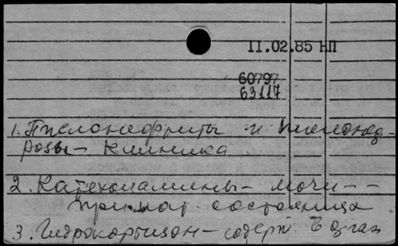 11.02.85 НП
60797
63117
1. Пиелонефриты и пиелонеф-
розы - клиника
2. Катехоламины - мочи - -
при пат. состояниях
3. Гидрокортизон - содерж. в